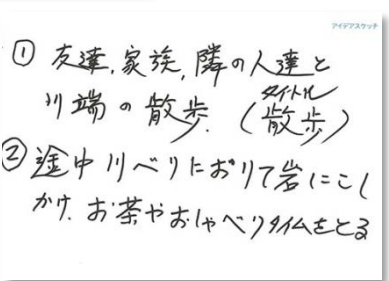 アイデアスケッチ
① 友達,家族,隣の人達と
川端の散歩.(散歩)
タイトル
② 途中川べりにおりて岩にこし
かけ.お茶やおしゃべりタイムをとる